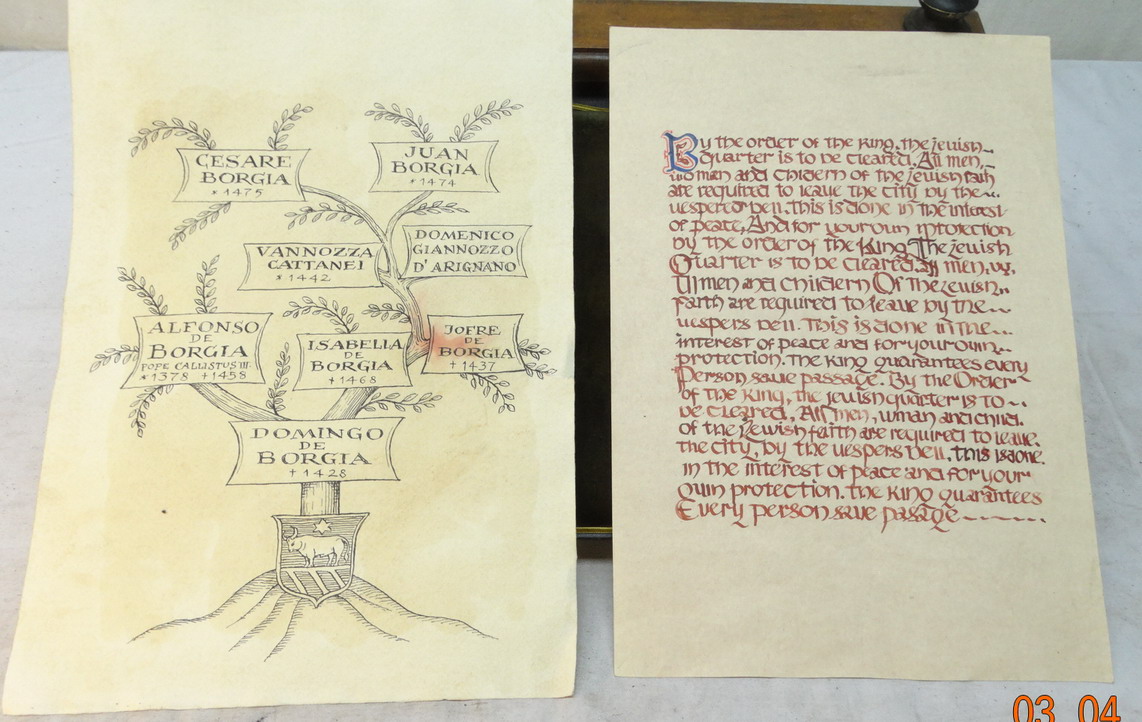 CESARE
BORGIA
* 1475
JUAN
BORGIA
* 1474
VANNOZZA
CATTANEI
* 1442
DOMENICO
GIANNOZZO
D'ARIGNANO
ALFONSO
DE
BORGIA
POPE CALLISTUS III.
* 1378 † 1458
ISABELLA
DE
BORGIA
† 1468
JOFRE
DE
BORGIA
† 1437
DOMINGO
DE
BORGIA
† 1428
By the order of the King, the Jewish
quarter is to be cleared. All men,
woman and childern of the Jewish faith
are required to leave the city by the
vespered bell. This is done in the interest
of peace, And for your own protection
by the order of the King. The Jewish
Quarter is to be cleared. All men,
All men and childern Of the Jewish
faith are required to leave by the
vespers bell. This is done in the
interest of peace and for your own
protection. The King quarantees every
Person save passage. By the Order
of the King, the jewish quarter is to
be cleared. All men, woman and child.
of the Jewish faith are required to leave.
the city, by the vespers bell. this is done.
in the interest of peace and for your
own protection. the King quarantees
Every person save passage
03 04